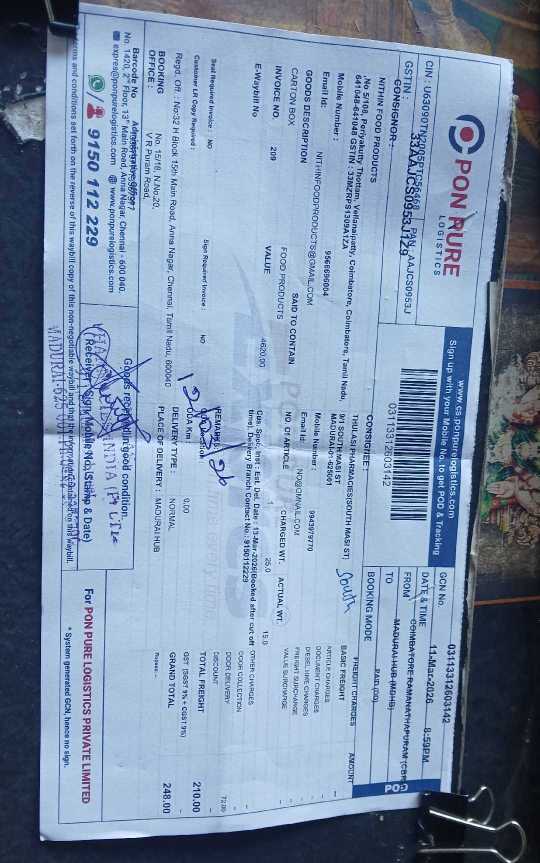 PON PURE
LOGISTICS
www.cs.ponpurelogistics.com
Sign up with your Mobile No. to get POD & Tracking
GSTIN : 33AAJCS0953J1Z9
PAN AAJCS0953J
03113312603142
GCN No. 03113312603142
DATE & TIME 11-Mar-2026 8:59PM
FROM COIMBATORE RAMANATHAPURAM
TO MADURAI HUB
BOOKING MODE PAID
POD
CONSIGNOR :
NITHIN FOOD PRODUCTS
No 5/108, Periyakutty Thottam, Vellanaipatty, Coimbatore, Coimbatore, Tamil Nadu
641048-641048 GSTIN :
Mobile Number : 9566696004
Email Id: NITHINFOODPRODUCTS@GMAIL.COM
CONSIGNEE:
THULASI PHARMACIES(SOUTH MASI ST)
9/1 SOUTH MASI ST
MADURAI-01-625001
South
Mobile Number : 9943979770
Email Id: NO@GMNAIL.COM
GOODS DESCRIPTION SAID TO CONTAIN NO Of ARTICLE CHARGED WT. ACTUAL WT.
CARTON BOX FOOD PRODUCTS 1 25.0 15.0
INVOICE NO. 209 VALUE 4620.00
E-Waybill No
Cus. Spcl. Inst : Est. Del. Date : 13-Mar-2026(Booked after cut off
time). Delivery Branch Contact No.: 9150112229
FREIGHT CHARGES AMOUNT
BASIC FREIGHT
ARTICLE CHARGES
DOCUMENT CHARGES
DIESEL HIKE CHARGES
FREIGHT SURCHARGE
VALUE SURCHARGE
OTHER CHARGES
DOOR COLLECTION
DOOR DELIVERY 72.00
DISCOUNT
TOTAL FREIGHT 210.00
GST (SGST 9% + CGST 9%)
GRAND TOTAL 248.00
Rupees
Seal Required Invoice : NO
Sign Required Invoice : NO
Customer LR Copy Required :
REMARKS
ODA Km : 0.00
DELIVERY TYPE : NORMAL
PLACE OF DELIVERY : MADURAI HUB
Regd. Off. : No:32 H Block 15th Main Road, Anna Nagar, Chennai, Tamil Nadu, 600040
BOOKING OFFICE : No. 15/18, N.No.20,
V R Puram Road,
Barcode No
No. 1420, 2nd Floor, 13th Main Road, Anna Nagar, Chennai - 600 040.
express@ponpurelogistics.com www.ponpurelogistics.com
9150 112 229
Goods received in good condition
Receiver's Sign, Mobile No. (Stamp & Date)
For PON PURE LOGISTICS PRIVATE LIMITED
* System generated GCN, hence no sign.
terms and conditions set forth on the reverse of this waybill copy of this non-negotiable waybill